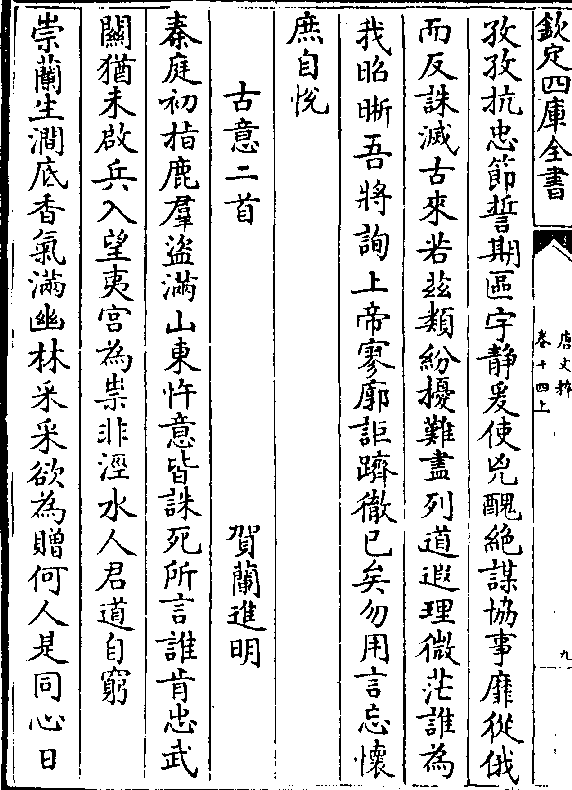 欽定四庫全書
唐文粹
卷十四上
九
孜孜抗忠節誓期區宇靜爰使兇醜絶謀協事靡從俄
而反誅滅古來若兹類紛擾難盡列道遐理微茫誰為
我昭晣吾將詢上帝寥廓詎躋徹已矣勿用言忘懷
庶自悅
古意二首
賀蘭進明
秦庭初指鹿羣盜滿山東忤意皆誅死所言誰肯忠武
關猶未啟兵入望夷宫為祟非涇水人君道自窮
崇蘭生澗底香氣滿幽林采采欲為贈何人是同心日